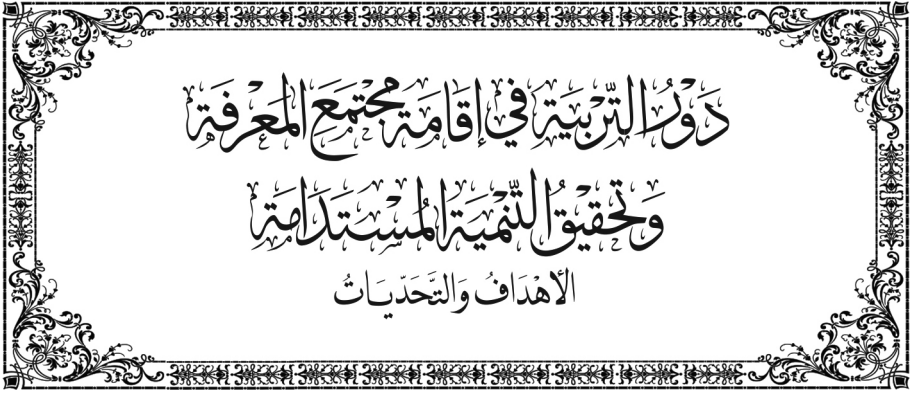 دَوْرُ التَّرْبِيَةِ فِي إِقَامَةِ مُجْتَمَعِ المَعْرِفَةِ
وَتَحْقِيقُ التَّنْمِيَةِ المُسْتَدَامَةِ
الأَهْدَافُ وَالتَّحَدِّيَاتُ